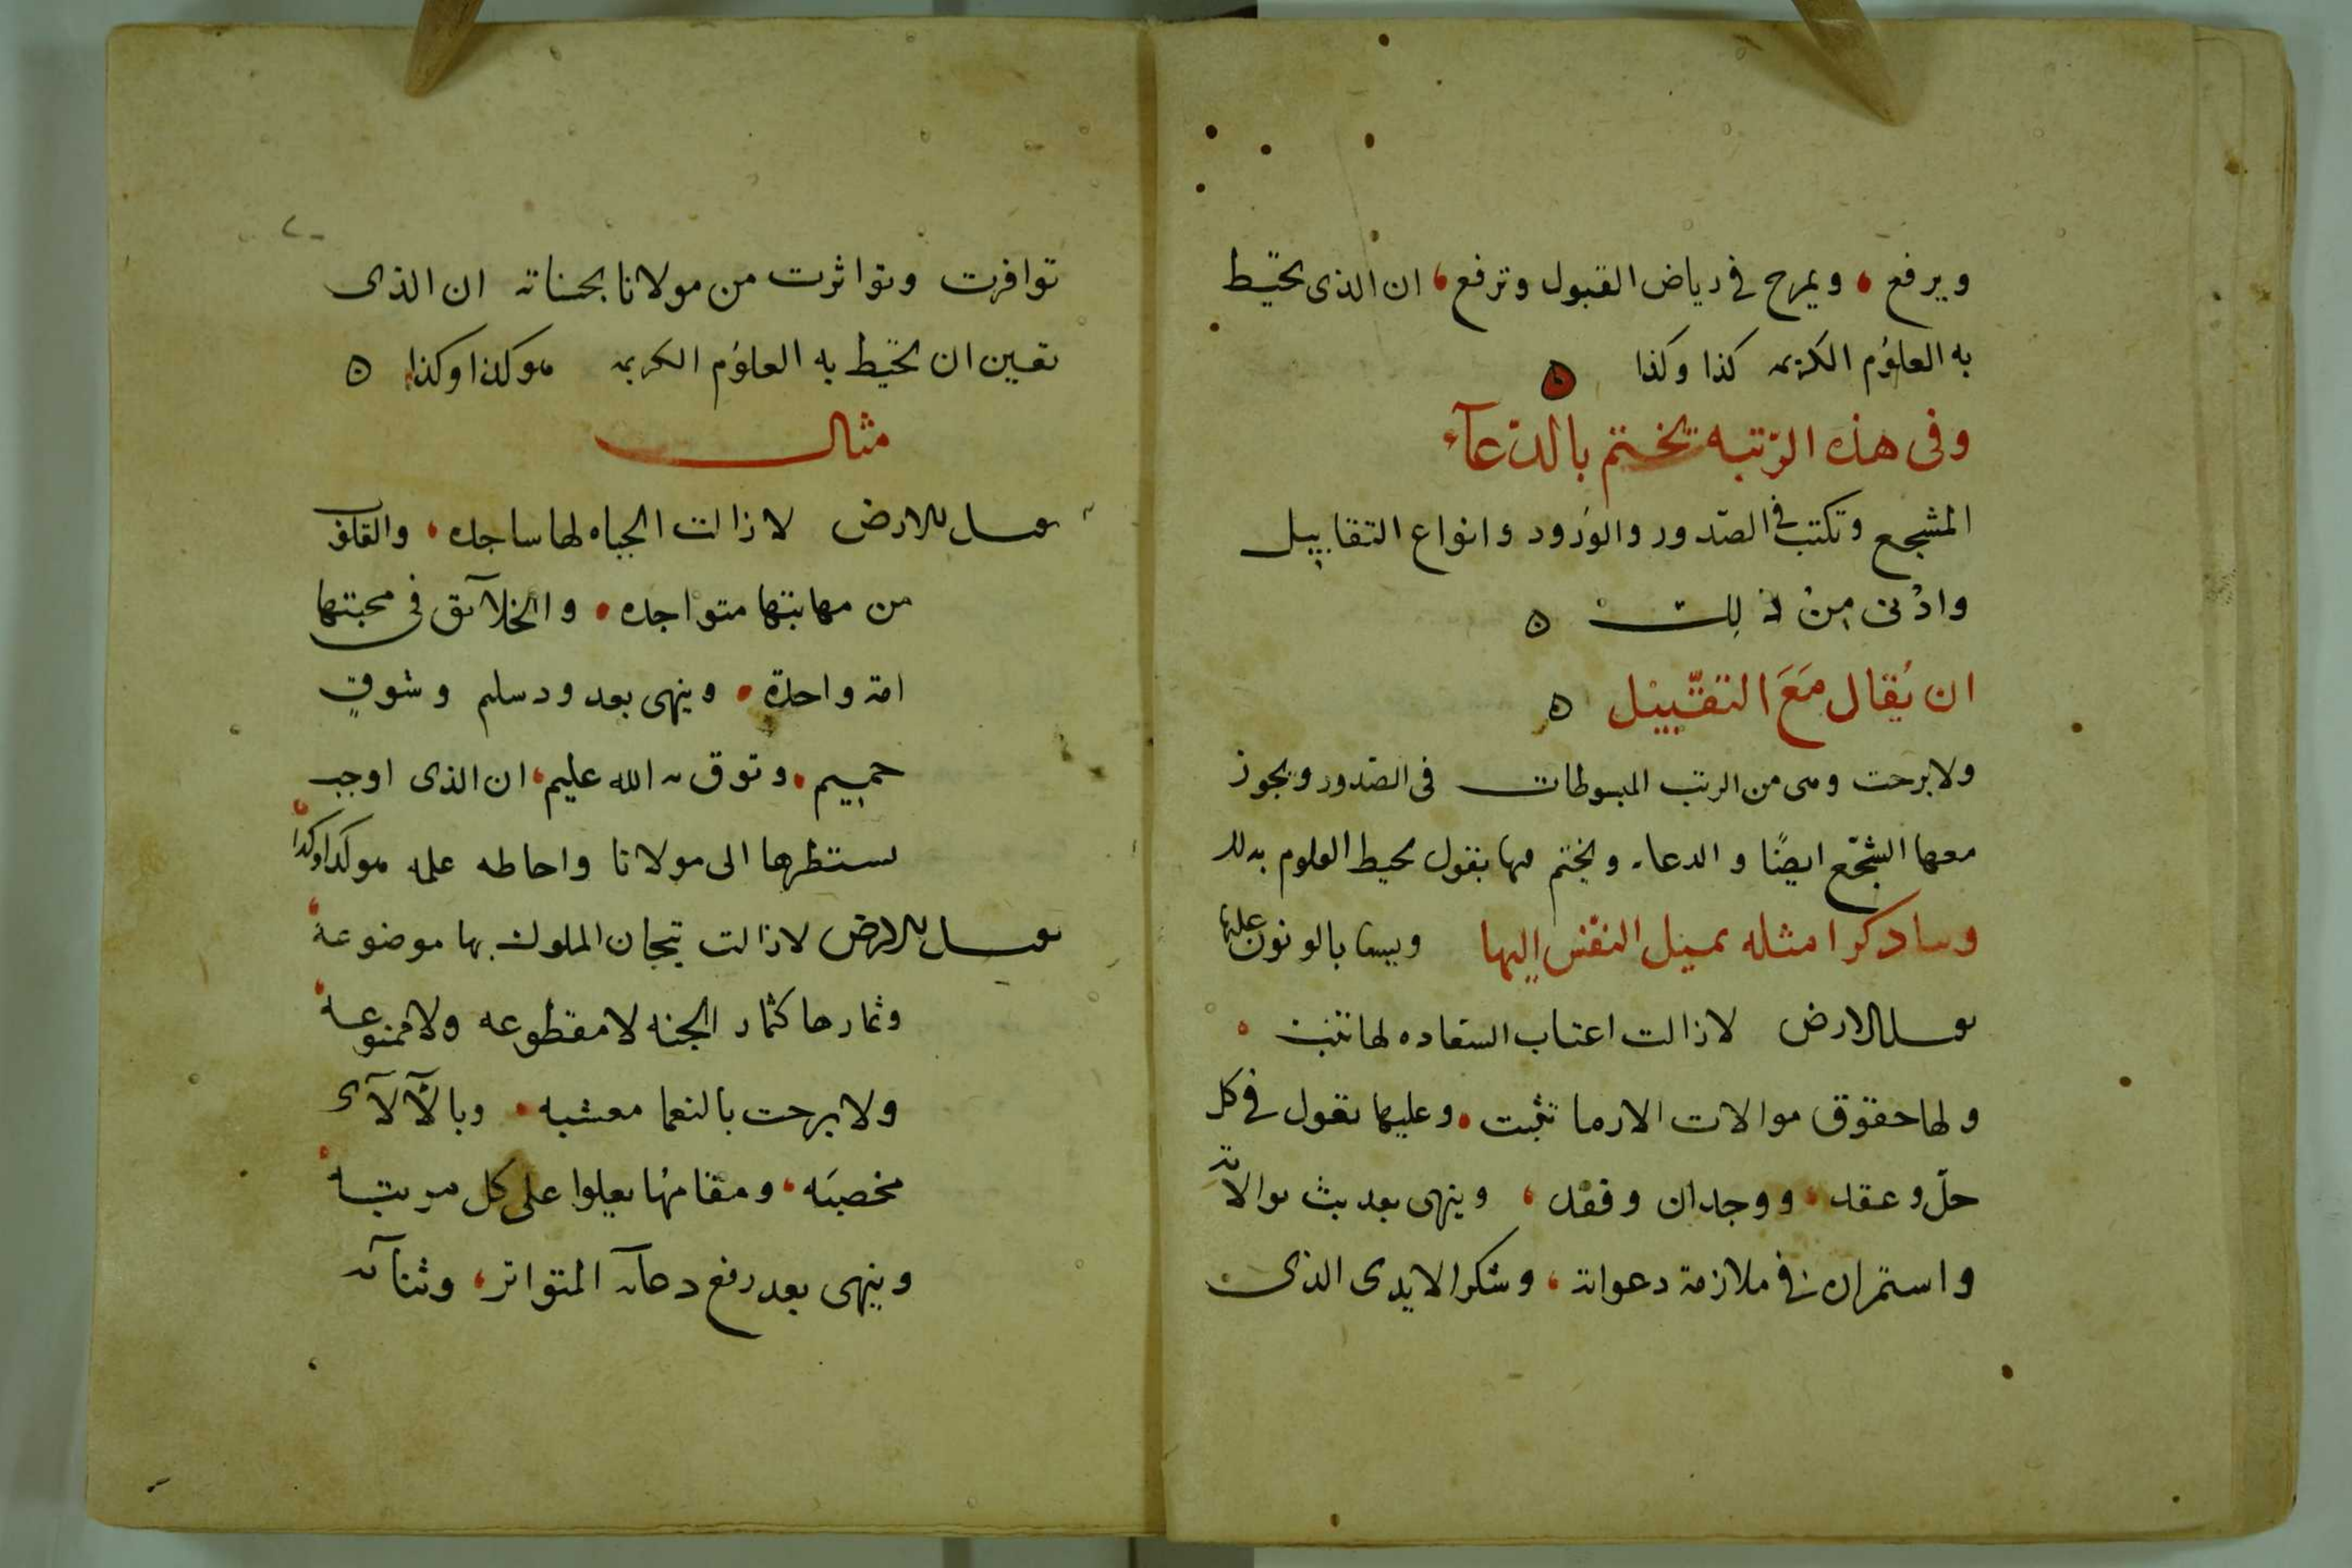 ويرفع ، ويمرح في رياض القبول وترفع ، ان الذى يحيط
به العلوم الكريمه كذا وكذا ه
وفى هذه الرّتبه تختم بالدّعآء
المشجع وتكتب في الصّدور والورود وانواع التقابيل
وادْنى مِنْ ذلك ه
ان يُقال مَعَ التقّبيْل ه
ولا برحت ومى من الرتب المبسوطات فى الصّدور ويجوز
معها الشجّع ايضًا والدعاء ويختم بقول يحيط العلوم بذلك
وسا ذكر امثله يميْل النفْس اليها
الارض لا زالت اعتاب السعاده لها تنبت ،
ولها حقوق موالات الارما تثبت ، وعليها نقول في كل
حلّ وعقد ، ووجدان وفقد ، وينهى بعد بث موالاته
واستمراره في ملازمة دعواته ، وشكر الايدى الذى
توافرت وتواثرت من مولانا بحسناته ان الذى
تعين ان يحيط به العلوم الكريمه هو كذا وكذا ه
مثال
يقبل الارض لا زالت الجباه لها ساجده ، والقلوب
من مهابتها متواجده ، والخلآئق فى محبتها
امة واحدة ، وينهى بعد ود سليم وشوقٍ
حميم ، وتوق الله عليم ، ان الذى اوجب
تسطرها الى مولانا واحاطه علمه هو كذا وكذا
يقبل الارض لا زالت تيجان الملوك بها موضوعة ،
وثمارها كثمار الجنه لا مقطوعه ولا ممنوعة ،
ولا برحت بالنعما معشبه ، وبالآلآء
مخصبَه ، ومقامها يعلوا على كل مرتبة ،
وينهى بعد رفع دعآئه المتواتر ، وثنآئه